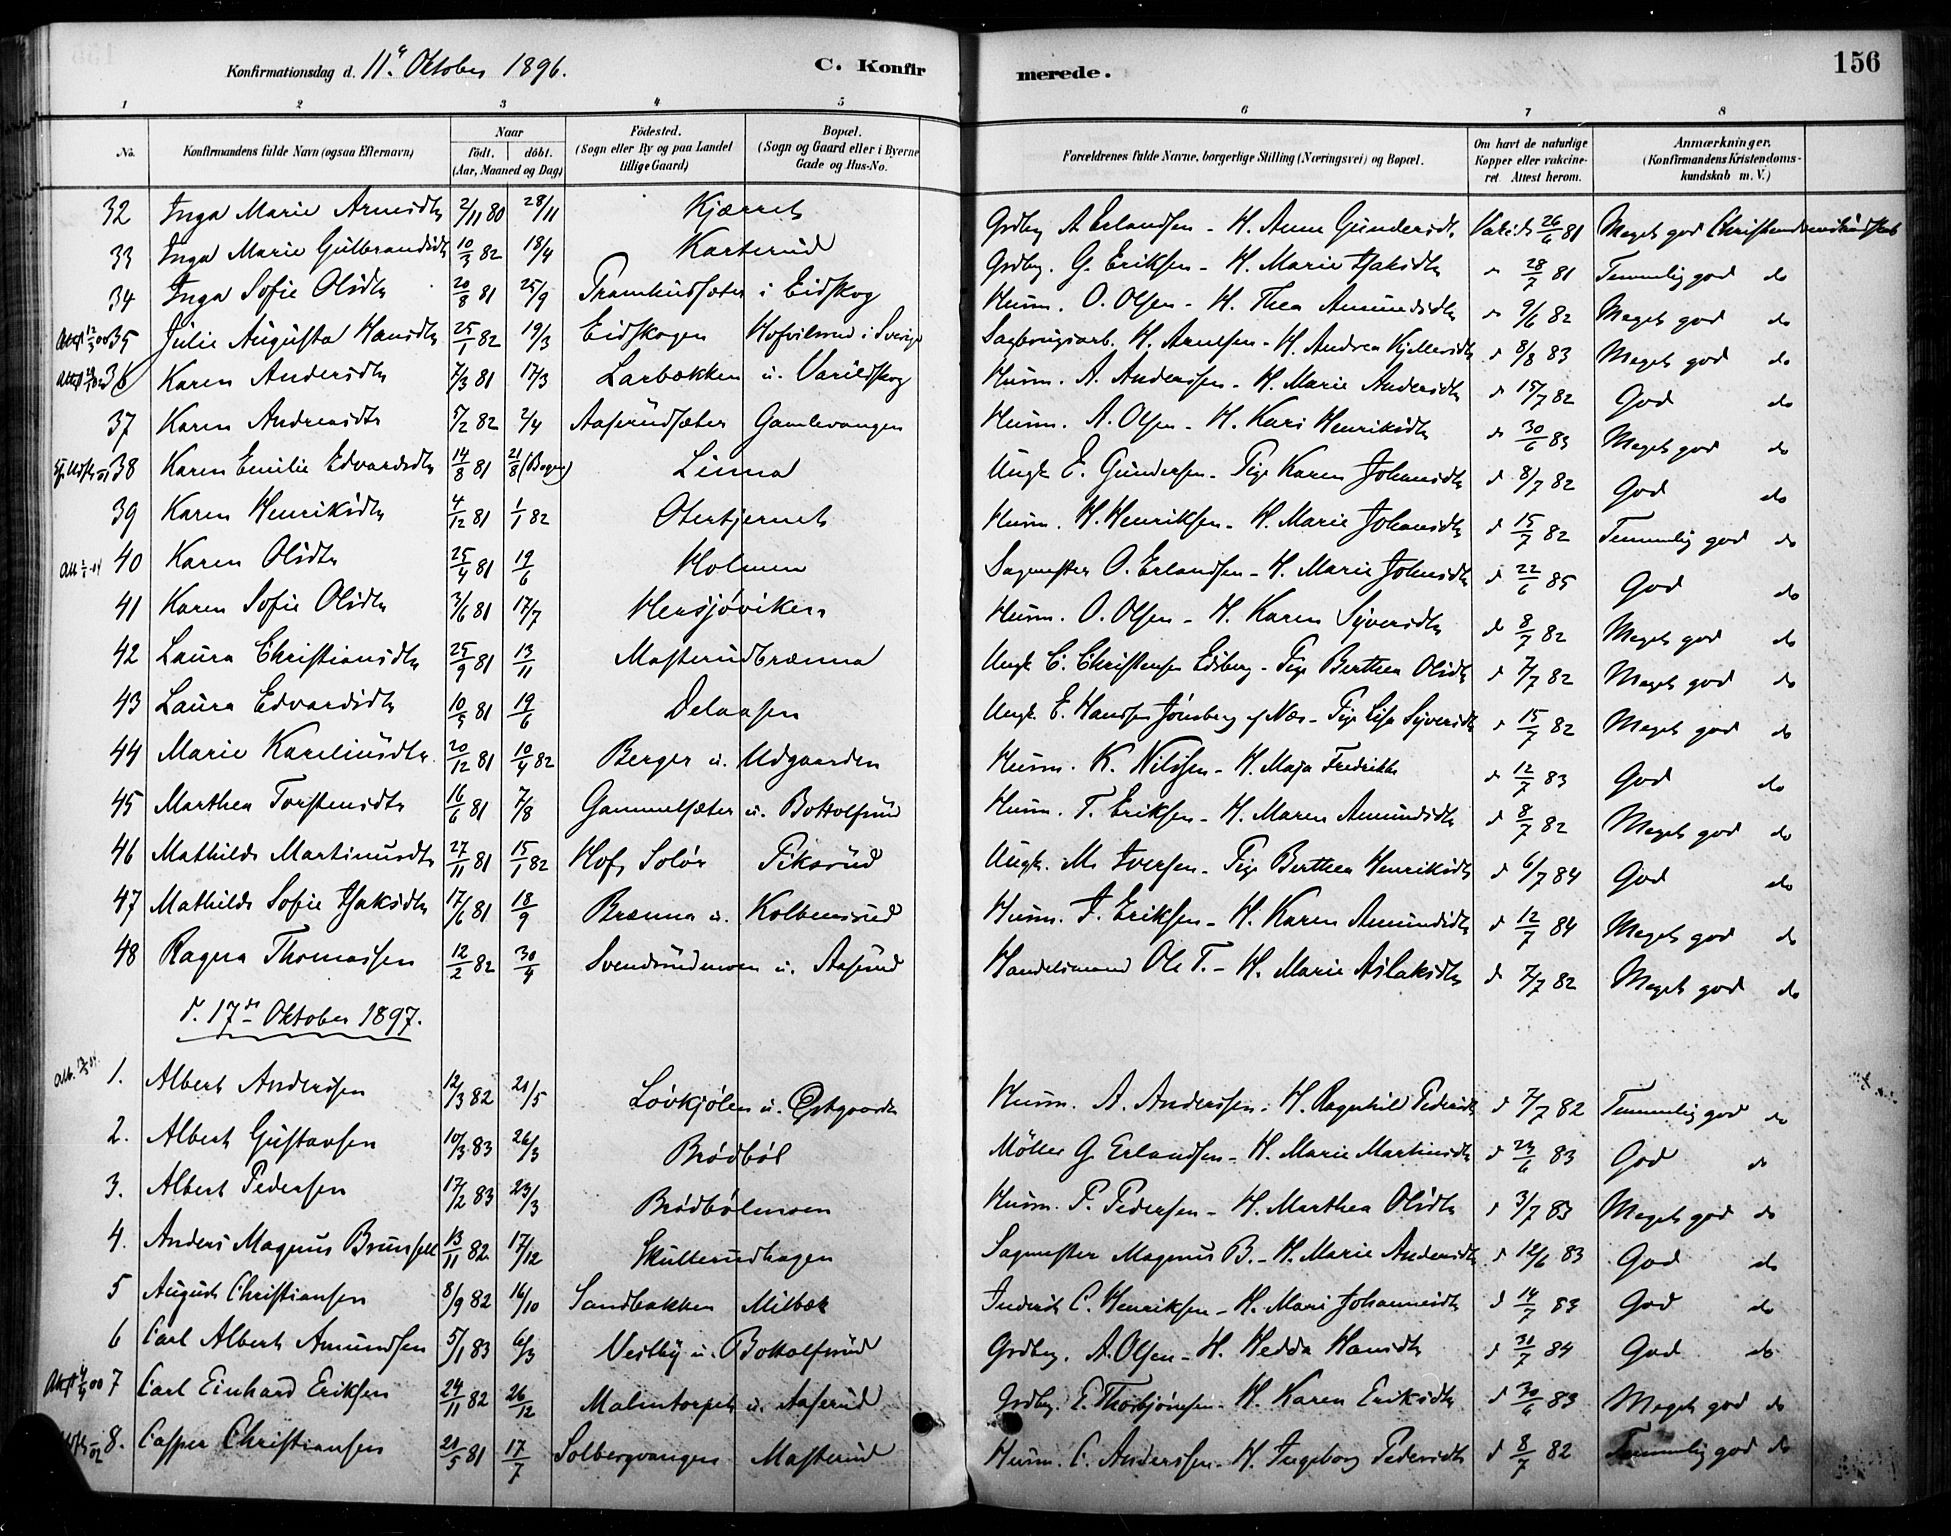 156
Konfirmationsdag d. 11te Oktober 1896. C. Konfirmerede.
1 2 3 4 5 6 7 8
No. Konfirmandens fulde Navn (ogsaa Efternavn) Naar født. døbt. (Aar, Maaned og Dag) Födested. (Sogn eller By og paa Landet tillige Gaard) Bopæl. (Sogn og Gaard eller i Byerne Gade og Hus-No. Forældrenes fulde Navne, borgerlige Stilling (Næringsvei) og Bopæl. Om havt de naturlige Kopper eller vakcineret. Attest herom. Anmærkninger. (Konfirmandens Kristendomskundskab m. V.)
32 Inga Marie Arnesdtr 2/11 80 28/11 Kjærret Grdbr. A Erlandsen - H. Anne Gundersdtr Vakcit 26/6 81 Meget god Christendomskundskab
33 Inga Marie Gulbrandsdtr 10/3 82 18/4 Karterud Grdbr. G. Eriksen - H. Marie Isaksdtr " 28/7 81 Temmelig god do
34 Inga Sofie Olsdtr 20/8 81 25/9 i Eidskog Husm. O. Olsen - H. Thea Amundsdtr " 9/6 82 Meget god do
35 Julie Augusta Hansdtr 25/1 82 19/3 Eidskogen i Sverige Sagbrugsarb. H. Arnesen - H. Andrea Kjellersdtr d 8/8 83 Meget god do
36 Karen Andersdtr 7/3 81 17/3 Larbakken u. Varildskog Husm. A. Anderssen - H. Marie Andersdtr d 15/7 82 God do
37 Karen Andreasdtr 5/2 82 2/4 Aaserudsæter Gamlevangen Husm. A. Olsen - H. Kari Henriksdtr do 30/6 83 Meget god do
38 Karen Emilie Edvardsdtr 14/8 81 21/8 (Bogen) Linna Ungk. E. Gundersen - Pige Karen Johansdtr d 8/7 82 God do
39 Karen Henriksdtr 4/12 81 1/1 82 Otertjernet Husm. H. Henriksen - H. Marie Johansdtr d 15/7 82 Temmelig god do
40 Karen Olsdtr 25/4 81 19/6 Holmen Sagmester O. Erlandsen - H. Marie Johnsdtr d 22/6 85 God do
41 Karen Sofie Olsdtr 3/6 81 17/7 Hersjøviken Husm. O. Olsen - H. Karen Syversdtr do 8/7 82 Meget god do
42 Laura Christiansdtr 25/9 81 13/11 Masterudbrænna Ungk. C. Christensen Edsberg - Pige Berthea Olsdtr d 7/7 82 Meget god do
43 Laura Edvardsdtr 10/5 81 19/6 Delaasen Ungk. E. Hansen Jønsberg af Næs - Pige Lise Syversdtr " 15/7 82 Meget god do
44 Marie Kareliusdtr. 20/12 81 10/4 82 Berger u. Udgaarden Husm. K. Nilssen - H. Maja Fredrikke d 12/7 83 God do
45 Marthea Torstensdtr 16/6 81 7/8 Gammelsæter u. Bottolfsrud Husm. T. Eriksen - H. Maren Amundsdtr d 8/7 82 Meget god do
46 Mathilde Martinusdtr 27/11 81 15/1 82 Hof, Solør Piksrud Ungk. M. Iversen - Pige Berthea Henriksdtr d 6/7 84 God do
47 Mathilde Sofie Isaksdtr 17/6 81 18/9 Brænna u. Kolbensrud Husm. I. Eriksen - H. Karen Amundsdtr d 12/7 84 Meget god do
48 Ragna Thomassen 12/2 82 30/4 Svensrudmoen u. Aaserud Handelsmand Ole T. - H. Marie Aslaksdtr d 7/7 82 Meget god do
d. 17de Oktober 1897.
1. Albert Anderssen 12/3 82 21/5 Løvkjølen u. Østgaarde Husm. A. Anderssen - H. Ragnhild Pedersdtr d 7/7 82 Temmelig god do
2. Albert Gustavsen 10/3 83 26/3 Brødbøl Möller G. Erlandsen - H. Marie Martinsdtr d 23/6 83 God do
3. Albert Pedersen 17/2 83 23/3 Brødbølmoen Husm. P. Pedersen - H. Marthea Olsdtr d 3/7 83 Meget god do
4. Anders Magnus Brunsell 13/11 82 17/12 Skulterudhagen Sagmester Magnus B. - H. Marie Andersdtr d 12/6 83 God do
5 August Christiansen 8/9 82 16/10 Sandbakken Milbæk Inderst C. Henriksen - H. Mari Johannesdtr d 14/7 83 God do
6 Carl Albert Amundsen 5/1 83 6/3 Vestby u. Bottolfsrud Grdbr. A. Olsen - H. Hedda Hansdtr d 31/7 84 God do
7 Carl Einhard Eriksen 24/11 82 26/12 Malmtorpet u. Aaserud Grdbr. E. Thorbjörnsen - H. Karen Eriksdtr d 30/6 83 Meget god do
8. Casper Christiansen 21/5 81 17/7 Solbergvangen Masterud Husm. C. Anderssen - H. Ingeborg Pedersdtr d 8/7 82 Temmelig god do